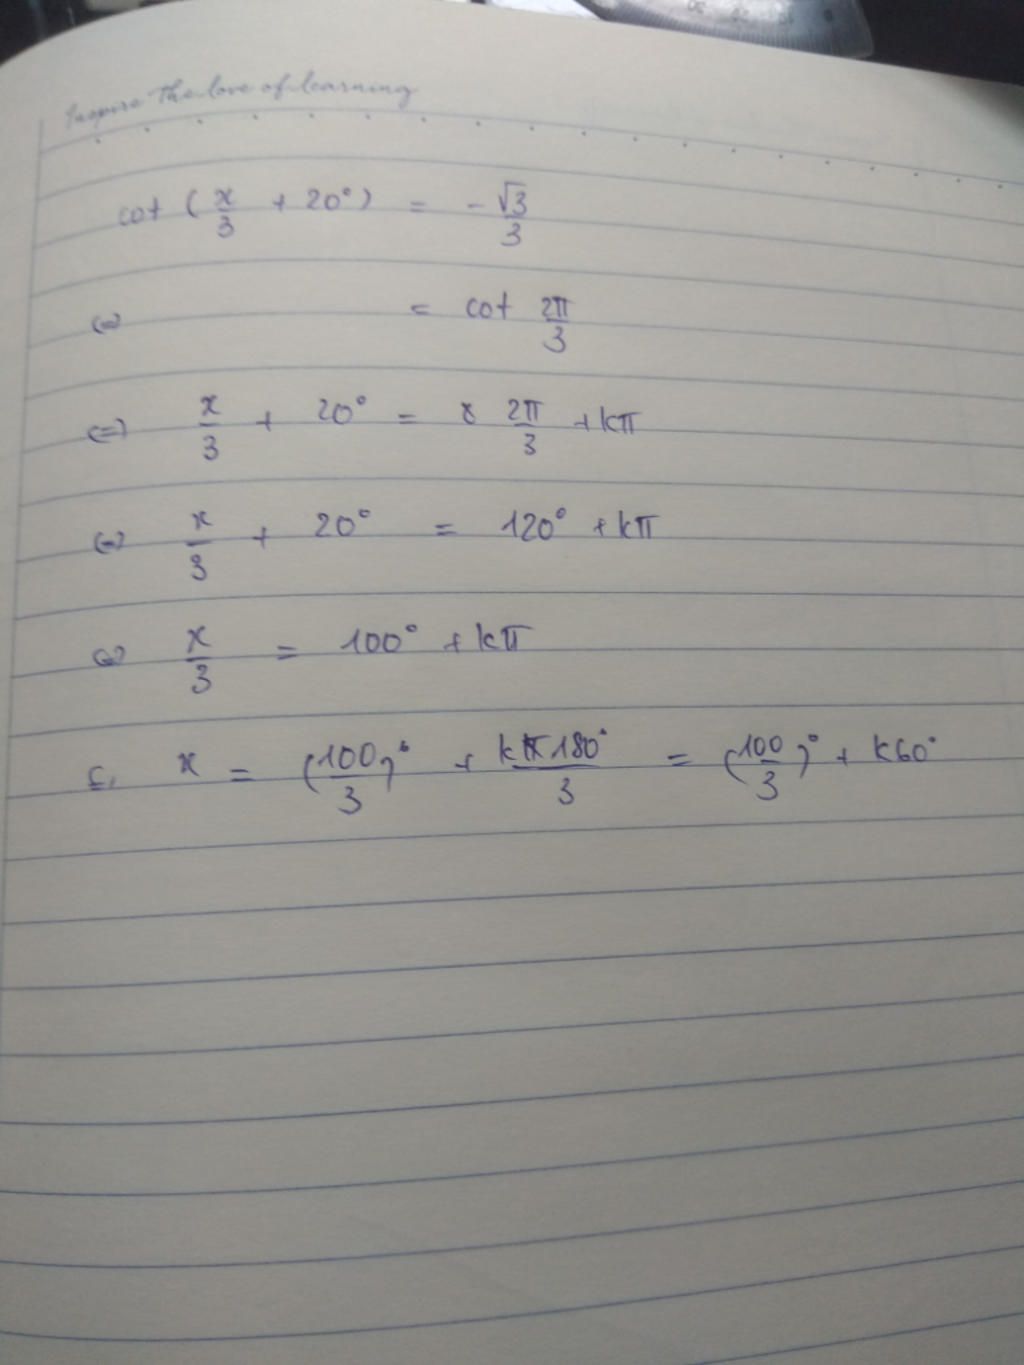 Inspire the love of learning
cot (x/3 + 20°) = - √3/3
(=) = cot 2π/3
(=) x/3 + 20° = 2π/3 + kπ
(=) x/3 + 20° = 120° + kπ
(=) x/3 = 100° + kπ
x = (100/3)° + k180°/3 = (100/3)° + k60°